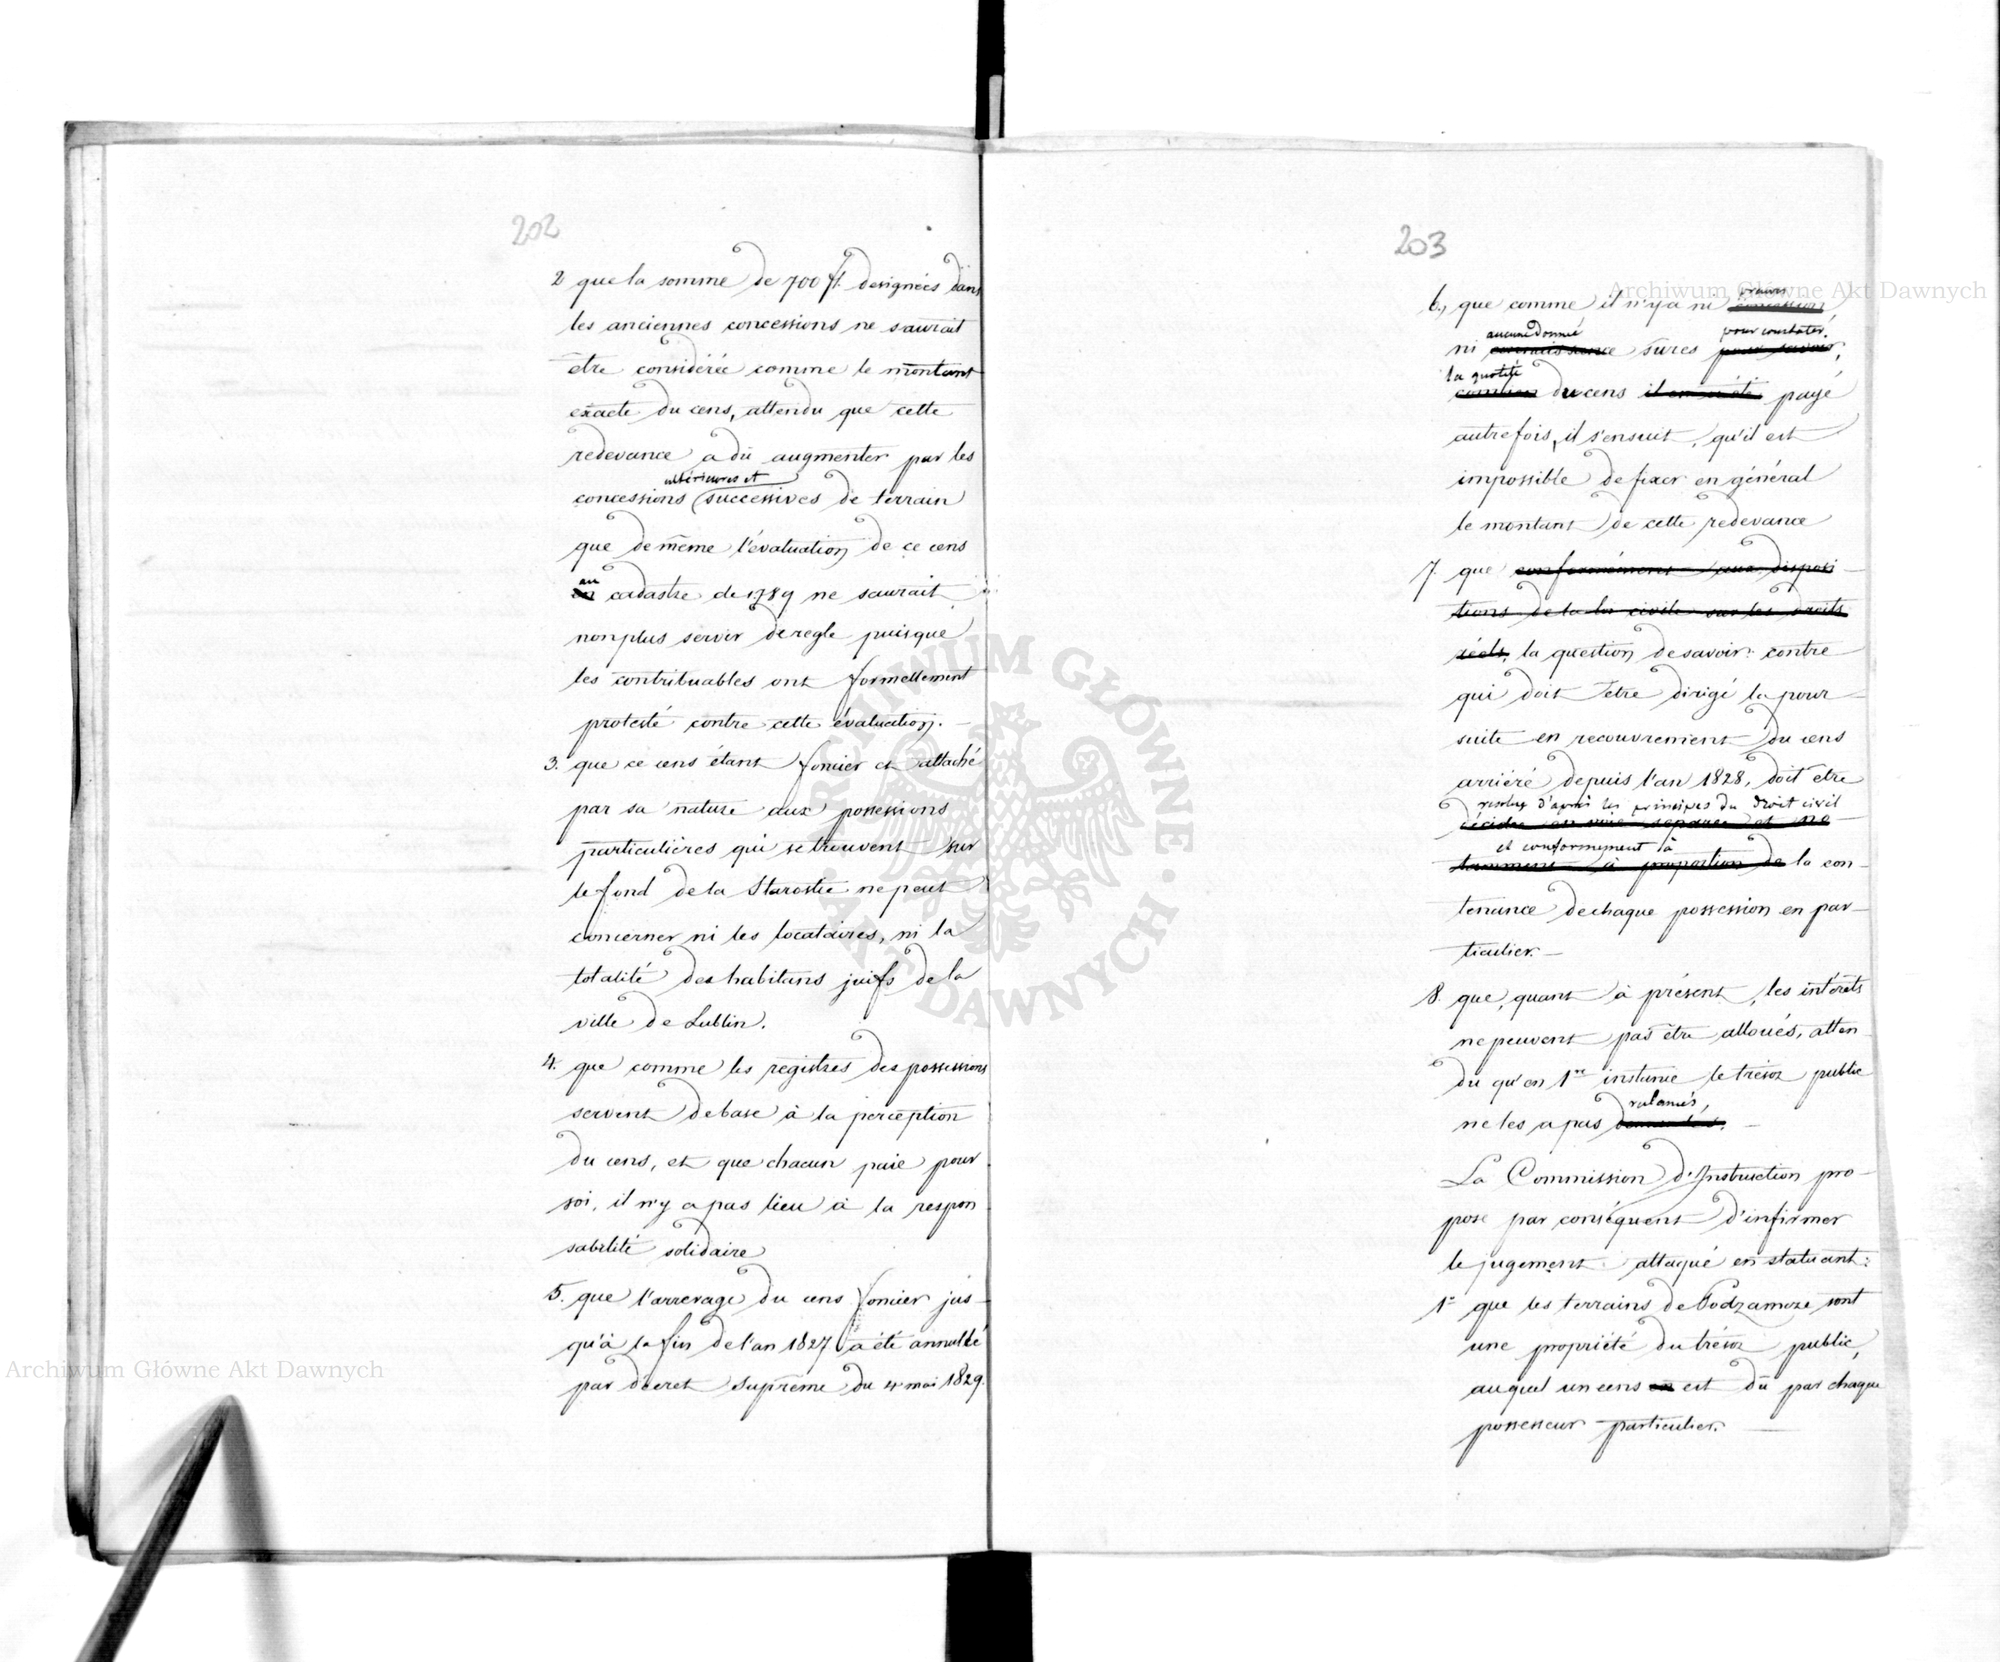 202
2 que la somme de 700 fl. designées dans
les anciennes concessions ne saurait
être considérée comme le montant
exacte du cens, attendu que cette
redevance a dû augmenter par les
ultérieures et
concessions successives de terrain
que de même l'évaluation de ce cens
au
cadastre de 1789 ne saurait
non plus servir de regle puisque
les contribuables ont formellement
protesté contre cette évaluation.
3. que ce cens étant foncier et attaché
par sa nature aux possessions
particulières qui se trouvent sur
le fond de la Starostie ne peut
concerner ni les locataires, ni la
totalité des habitans juifs de la
ville de Lublin.
4. que comme les registres des possessions
servent de base à la perception
du cens, et que chacun paie pour
soi, il n'y a pas lieu à la respon
sabilité solidaire
5. que l'arrerage du cens foncier jus-
qu'à la fin de l'an 1827 a été annullé
par décret Suprême du 4 mai 1829.
203
preuves
6., que comme, il n'y a ni concession
aucune donnée pour constater
ni connaissance sûres pour savoir,
la quotité
combien du cens il en a été payé
autrefois, il s'ensuit, qu'il est
impossible de fixer en général
le montant de cette redevance
7. que conformément aux disposi-
tions de la loi civile sur les droits
réels, la question de savoir: contre
qui doit être dirigé la pour-
suite en recouvrement du cens
arriéré depuis l'an 1828, doit être
resolue d'après les principes du droit civil
décidée en voie séparée et no-
et conformement à
tamment à proportion de la con-
tenance de chaque possession en par-
ticulier.-
8. que, quant à présent, les intérêts
ne peuvent pas être alloués, atten
du qu'en 1re instance le trésor public
reclamés,
ne les a pas demandés.
La Commission d'Instruction pro-
pose par conséquent d'infirmer
le jugement attaqué en statuant:
1° que les terrains de Podzamcze sont
une propriété du trésor public,
auquel un cens est dû par chaque
possesseur particulier.
Archiwum Główne Akt Dawnych
Archiwum Główne Akt Dawnych
ARCHIWUM GŁÓWNE AKT DAWNYCH